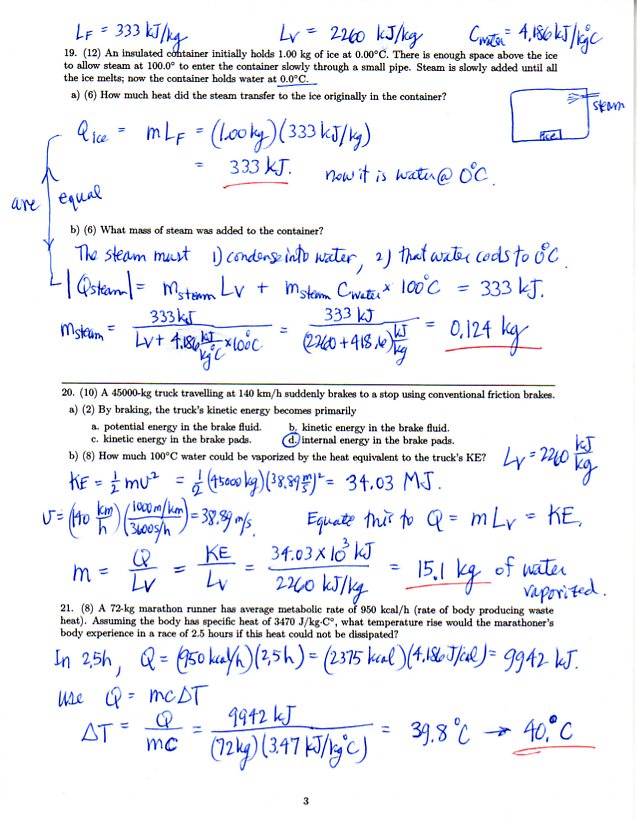 L_F = 333 kJ/kg L_V = 2260 kJ/kg C_water = 4.186 kJ/kg°C
19. (12) An insulated container initially holds 1.00 kg of ice at 0.00°C. There is enough space above the ice
to allow steam at 100.0° to enter the container slowly through a small pipe. Steam is slowly added until all
the ice melts; now the container holds water at 0.0°C.
a) (6) How much heat did the steam transfer to the ice originally in the container?
steam
ice
Q_ice = mL_F = (1.00kg)(333 kJ/kg)
= 333 kJ. now it is water @ 0°C.
are equal
b) (6) What mass of steam was added to the container?
The steam must 1) condense into water, 2) that water cools to 0°C.
|Q_steam| = m_steam L_V + m_steam C_water × 100°C = 333 kJ.
m_steam = 333 kJ / (L_V + 4.186 kJ/kg°C × 100°C) = 333 kJ / (2260+418.6) kJ/kg = 0.124 kg
20. (10) A 45000-kg truck travelling at 140 km/h suddenly brakes to a stop using conventional friction brakes.
a) (2) By braking, the truck's kinetic energy becomes primarily
a. potential energy in the brake fluid. b. kinetic energy in the brake fluid.
c. kinetic energy in the brake pads. d. internal energy in the brake pads.
b) (8) How much 100°C water could be vaporized by the heat equivalent to the truck's KE? L_V = 2260 kJ/kg
KE = ½ mv² = ½ (45000 kg)(38.89 m/s)² = 34.03 MJ.
v = (140 km/h)(1000 m/km / 3600 s/h) = 38.89 m/s. Equate this to Q = mL_V = KE.
m = Q/L_V = KE/L_V = 34.03 × 10³ kJ / 2260 kJ/kg = 15.1 kg of water
vaporized.
21. (8) A 72-kg marathon runner has average metabolic rate of 950 kcal/h (rate of body producing waste
heat). Assuming the body has specific heat of 3470 J/kg·C°, what temperature rise would the marathoner's
body experience in a race of 2.5 hours if this heat could not be dissipated?
In 2.5h, Q = (950 kcal/h)(2.5h) = (2375 kcal)(4.186 J/cal) = 9942 kJ.
use Q = mcΔT
ΔT = Q/mc = 9942 kJ / (72kg)(3.47 kJ/kg°C) = 39.8°C → 40.°C
3